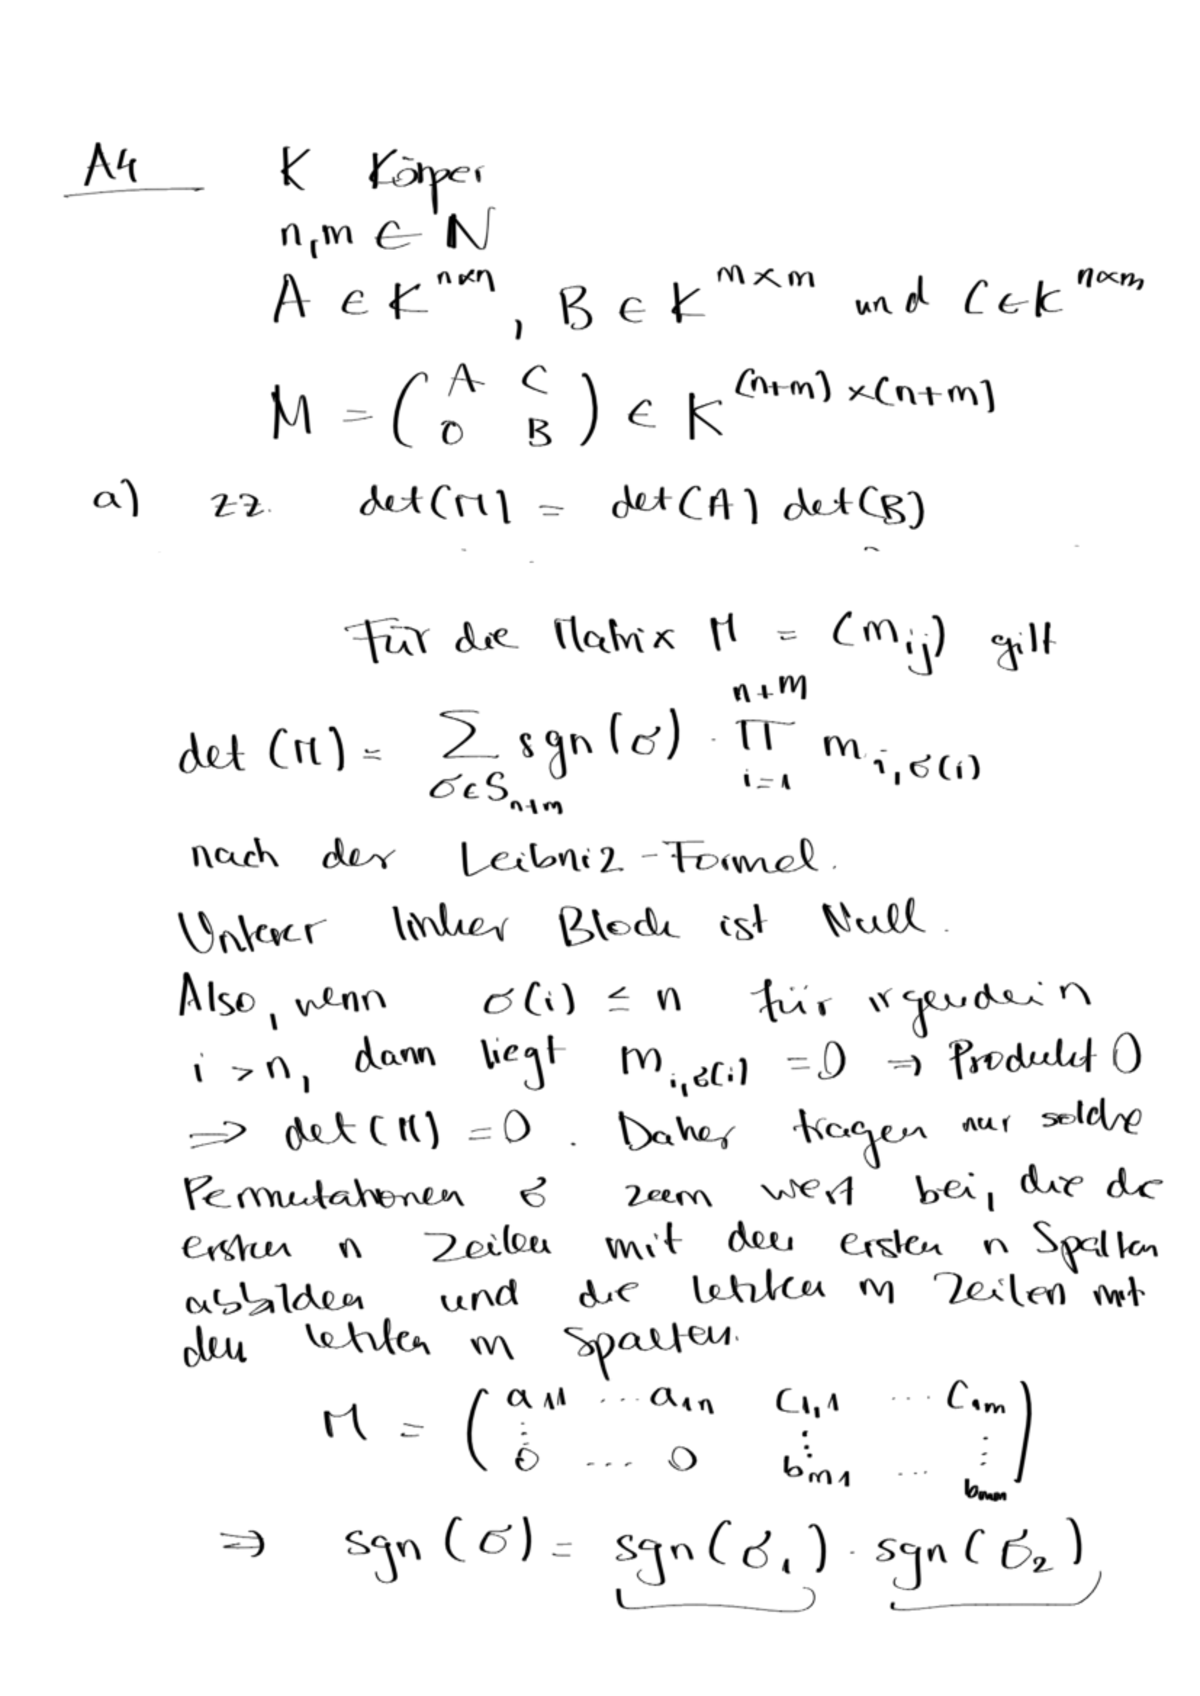 A4 K Körper
n,m ∈ N
A ∈ K^{n×n}, B ∈ K^{m×m} und C ∈ K^{n×m}
M = (A C
0 B) ∈ K^{(n+m)×(n+m)}
a) zz. det(M) = det(A) det(B)
Für die Matrix M = (m_{ij}) gilt
det(M) = ∑_{σ∈S_{n+m}} sgn(σ) · ∏_{i=1}^{n+m} m_{i,σ(i)}
nach der Leibniz-Formel.
Unterer linker Block ist Null.
Also, wenn σ(i) ≤ n für irgendein
i > n, dann liegt m_{i,σ(i)} = 0 ⇒ Produkt 0
⇒ det(M) = 0. Daher tragen nur solche
Permutationen σ zum Wert bei, die die
ersten n Zeilen mit den ersten n Spalten
abbilden und die letzten m Zeilen mit
den letzten m Spalten.
M = (a_{11} ... a_{1n} c_{1,1} ... c_{1m}
⋮ ⋮ ⋮
0 ... 0 b_{m1} ... b_{mm})
⇒ sgn(σ) = sgn(σ_1) · sgn(σ_2)